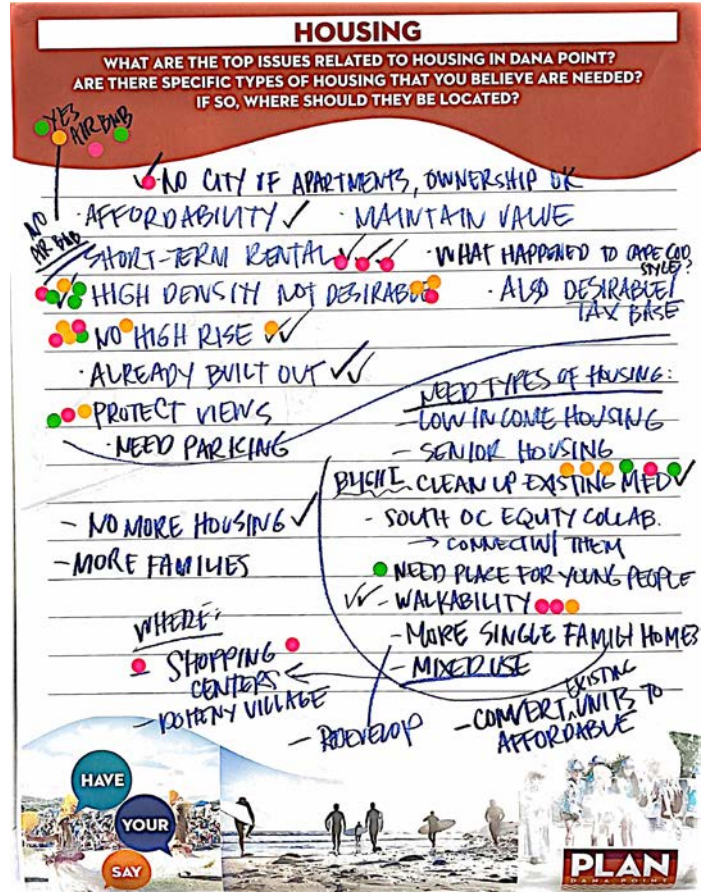 HOUSING
WHAT ARE THE TOP ISSUES RELATED TO HOUSING IN DANA POINT?
ARE THERE SPECIFIC TYPES OF HOUSING THAT YOU BELIEVE ARE NEEDED?
IF SO, WHERE SHOULD THEY BE LOCATED?
YES
AIRBNB
NO
AIRBNB
✓ NO CITY OF APARTMENTS, OWNERSHIP OK
· AFFORDABILITY ✓
· MAINTAIN VALUE
SHORT-TERM RENTAL ✓✓✓
· WHAT HAPPENED TO CAPE COD
STYLE?
✓✓ HIGH DENSITY NOT DESIRABLE
· ALSO DESIRABLE/
TAX BASE
NO HIGH RISE ✓✓
· ALREADY BUILT OUT ✓✓
PROTECT VIEWS
· NEED PARKING
NEED TYPES OF HOUSING:
- LOW INCOME HOUSING
- SENIOR HOUSING
BLIGHT - CLEAN UP EXISTING MFD ✓
- SOUTH OC EQUITY COLLAB.
→ CONNECT W/ THEM
NEED PLACE FOR YOUNG PEOPLE
✓✓ - WALKABILITY
- MORE SINGLE FAMILY HOMES
- MIXED USE
- NO MORE HOUSING ✓
- MORE FAMILIES
WHERE:
- SHOPPING
CENTERS
- DOHENY VILLAGE
- REDEVELOP
- CONVERT EXISTING UNITS TO
AFFORDABLE
HAVE
YOUR
SAY
PLAN
DANA POINT